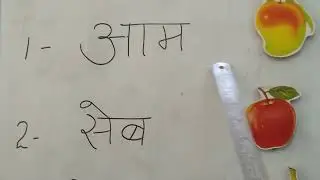 1- आम
2- सेब